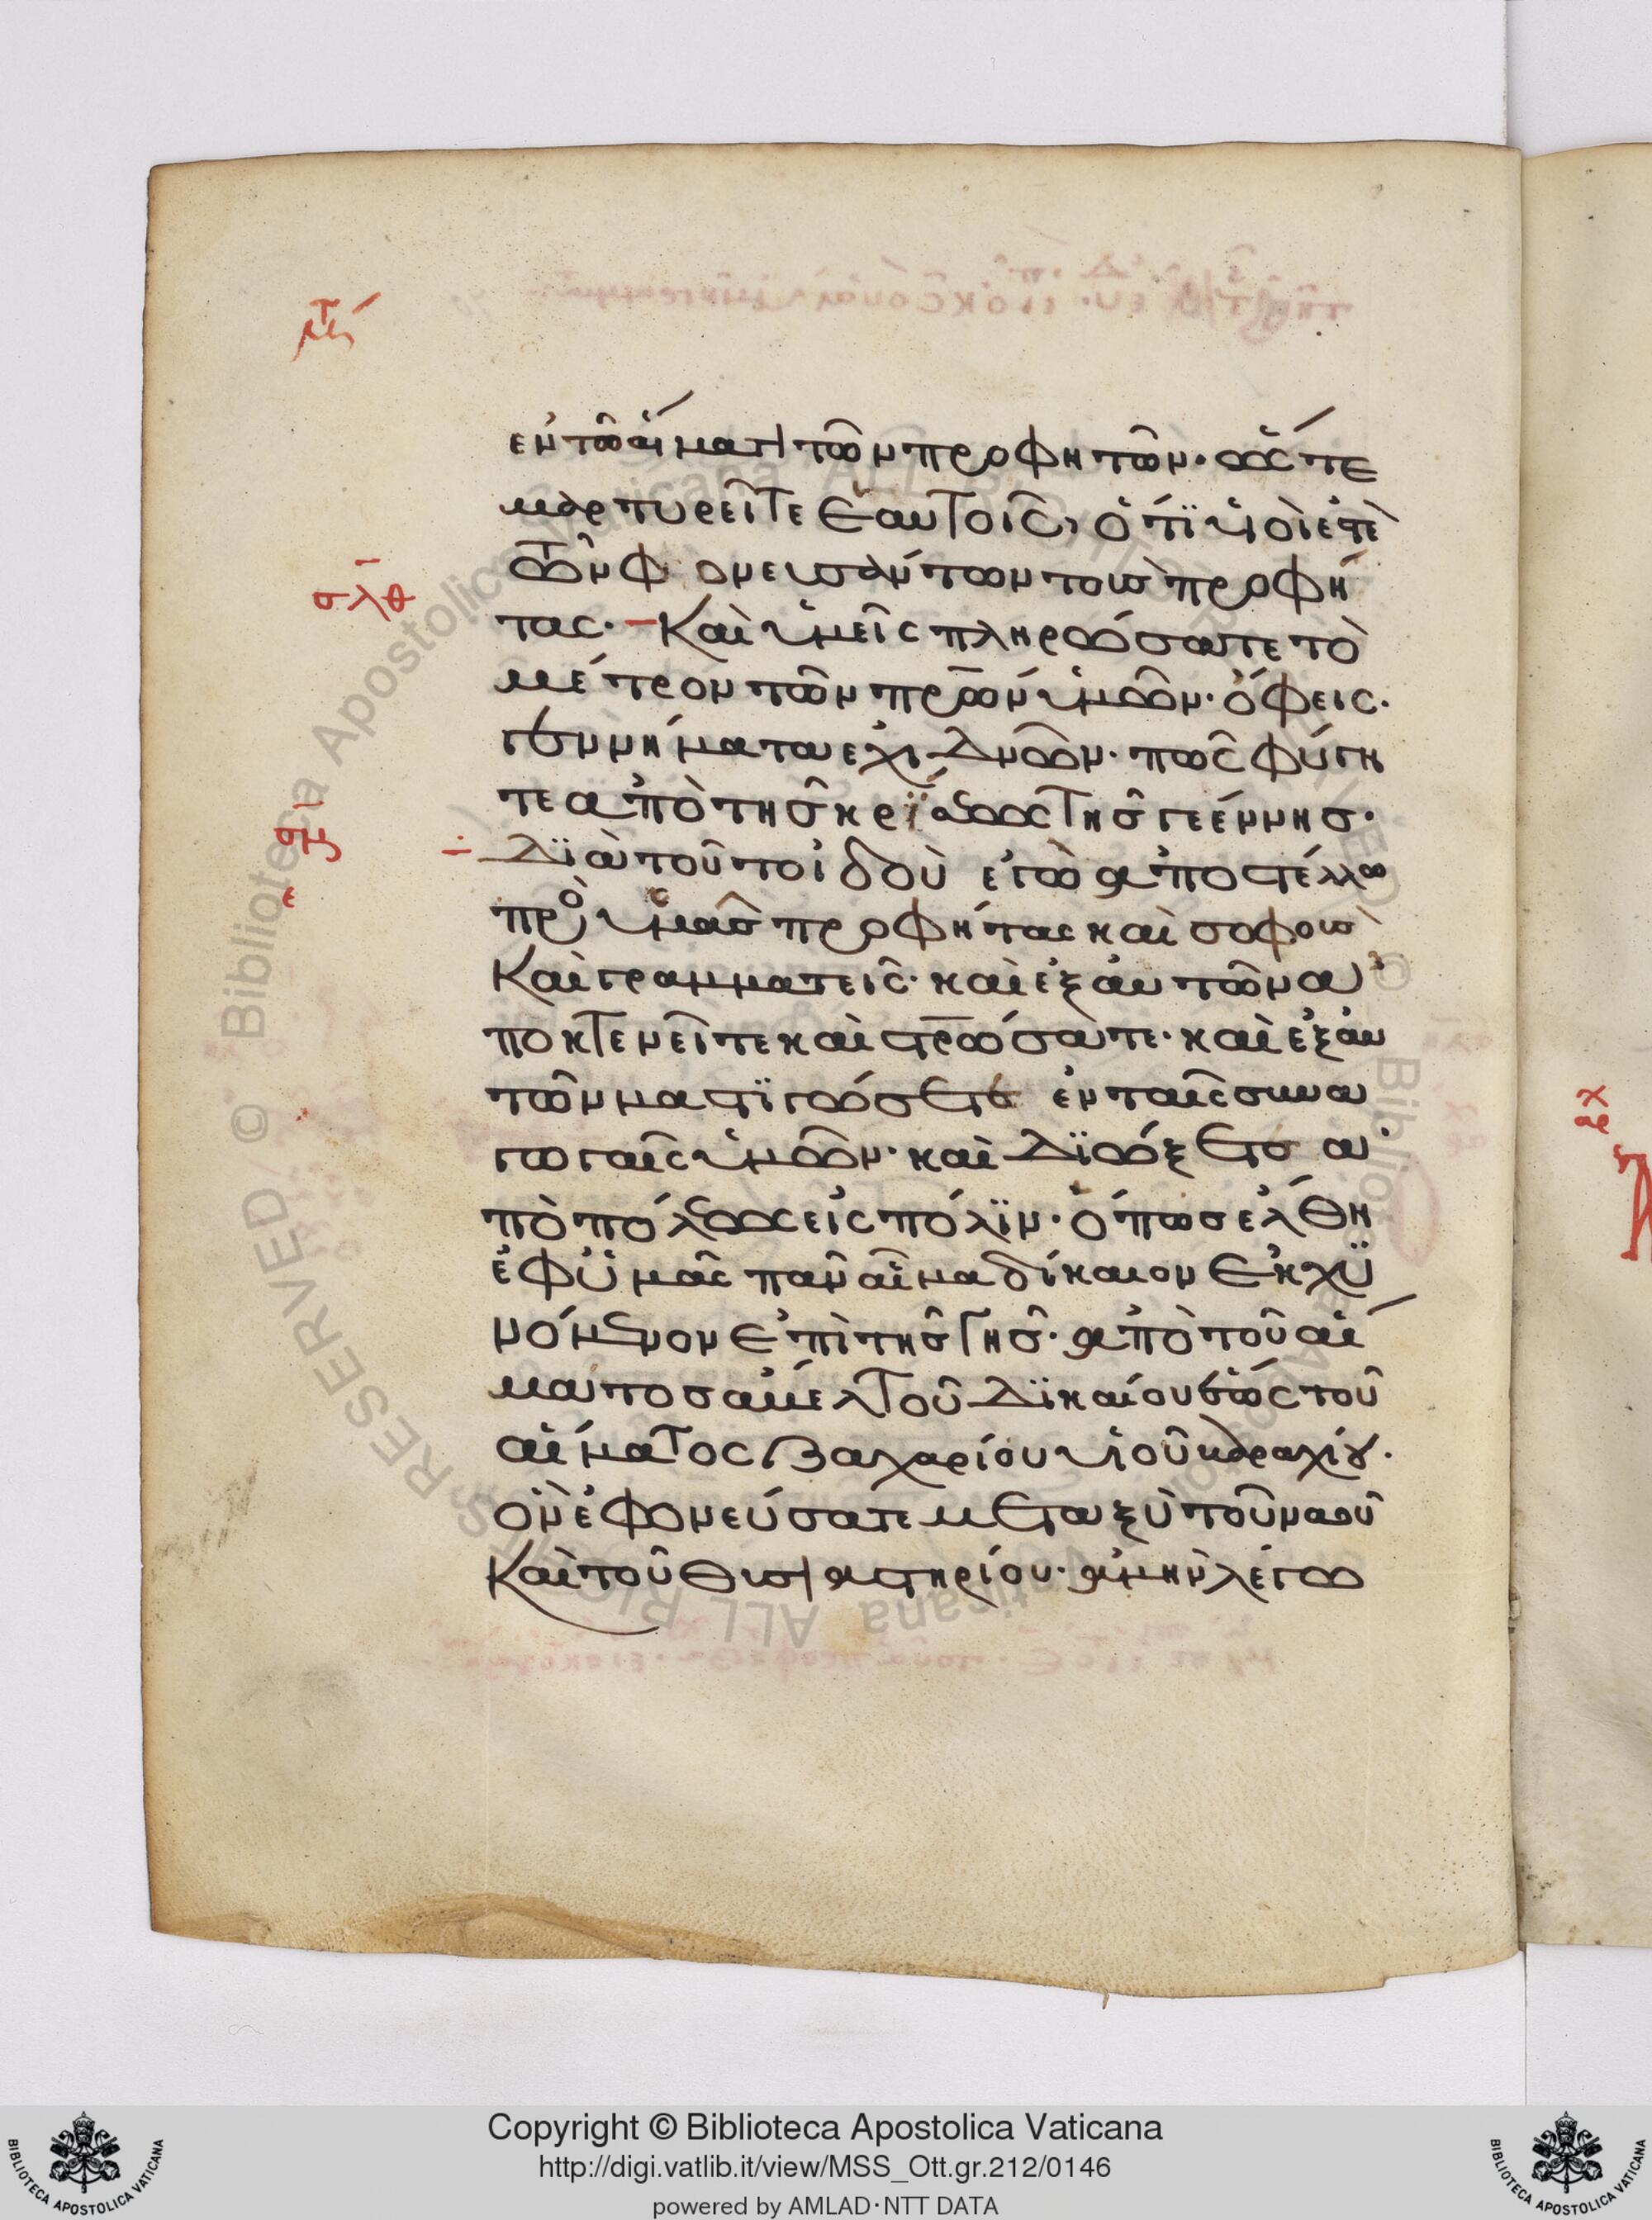 ἐν τῶ αἵματι τῶν προφητῶν· ὥστε
μαρτυρεῖτε ἑαυτοῖς, ὅτι υἱοί ἐστὲ
τῶν φονευσάντων τοὺς προφή
τας· Καὶ ὑμεῖς πληρώσατε τὸ
σλθ
μέτρον τῶν πρων ὑμῶν· ὄφεις·
γεννήματα ἐχιδνῶν· πῶς φύγη
τε ἀπὸ τῆς κρίσεως τῆς γεέννης·
σμ
ε
Διὰ τοῦτο ἰδοὺ ἐγὼ ἀποστέλλω
πρὸς ὑμᾶς προφήτας καὶ σοφοὺς
Καὶ γραμματεῖς· καὶ ἐξ αὐτῶν ἀ
ποκτενεῖτε καὶ στρώσατε· καὶ ἐξ αὐ
τῶν μαστιγώσετε ἐν ταῖς συνα
γωγαῖς ὑμῶν· καὶ διώξετε ἀ
πὸ πόλεως εἰς πόλιν· ὅπως ἔλθη
ἐφ ὑμᾶς πᾶν αἷμα δίκαιον ἐκχυ
νόμενον ἐπὶ τῆς γῆς· ἀπὸ τοῦ αἵ
ματος ἄβελ τοῦ δικαίου ἕως τοῦ
αἵματος Ζαχαρίου υἱοῦ βαραχίου·
ὃν ἐφονεύσατε μεταξὺ τοῦ ναοῦ
Καὶ τοῦ θυσιαστηρίου· ἀμὴν λέγω
Copyright © Biblioteca Apostolica Vaticana
http://digi.vatlib.it/view/MSS_Ott.gr.212/0146
powered by AMLAD·NTT DATA
BIBLIOTECA APOSTOLICA VATICANA
BIBLIOTECA APOSTOLICA VATICANA